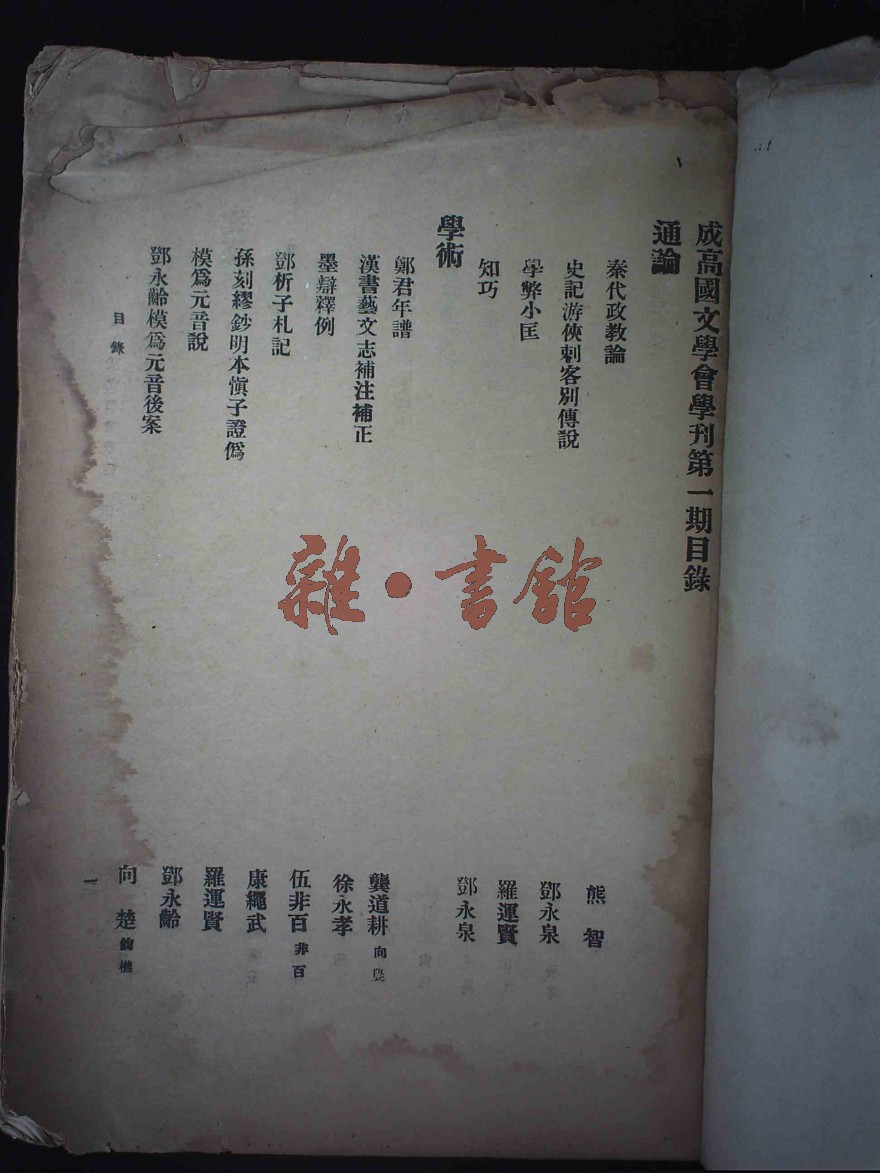 成高國文學會學刊第一期目錄
通論
秦代政教論 熊智
史記游俠刺客別傳說 鄧永泉
學弊小匡 羅運賢
知巧 鄧永泉
學術
鄭君年譜 龔道耕 向
漢書藝文志補注補正 徐永孝
墨辯釋例 伍非百 非百
鄧析子札記 康繩武
孫刻繆鈔明本愼子證僞 羅運賢
模爲元音說 鄧永齡
鄧永齡模爲元音後案 向楚
目錄
一
雜・書館